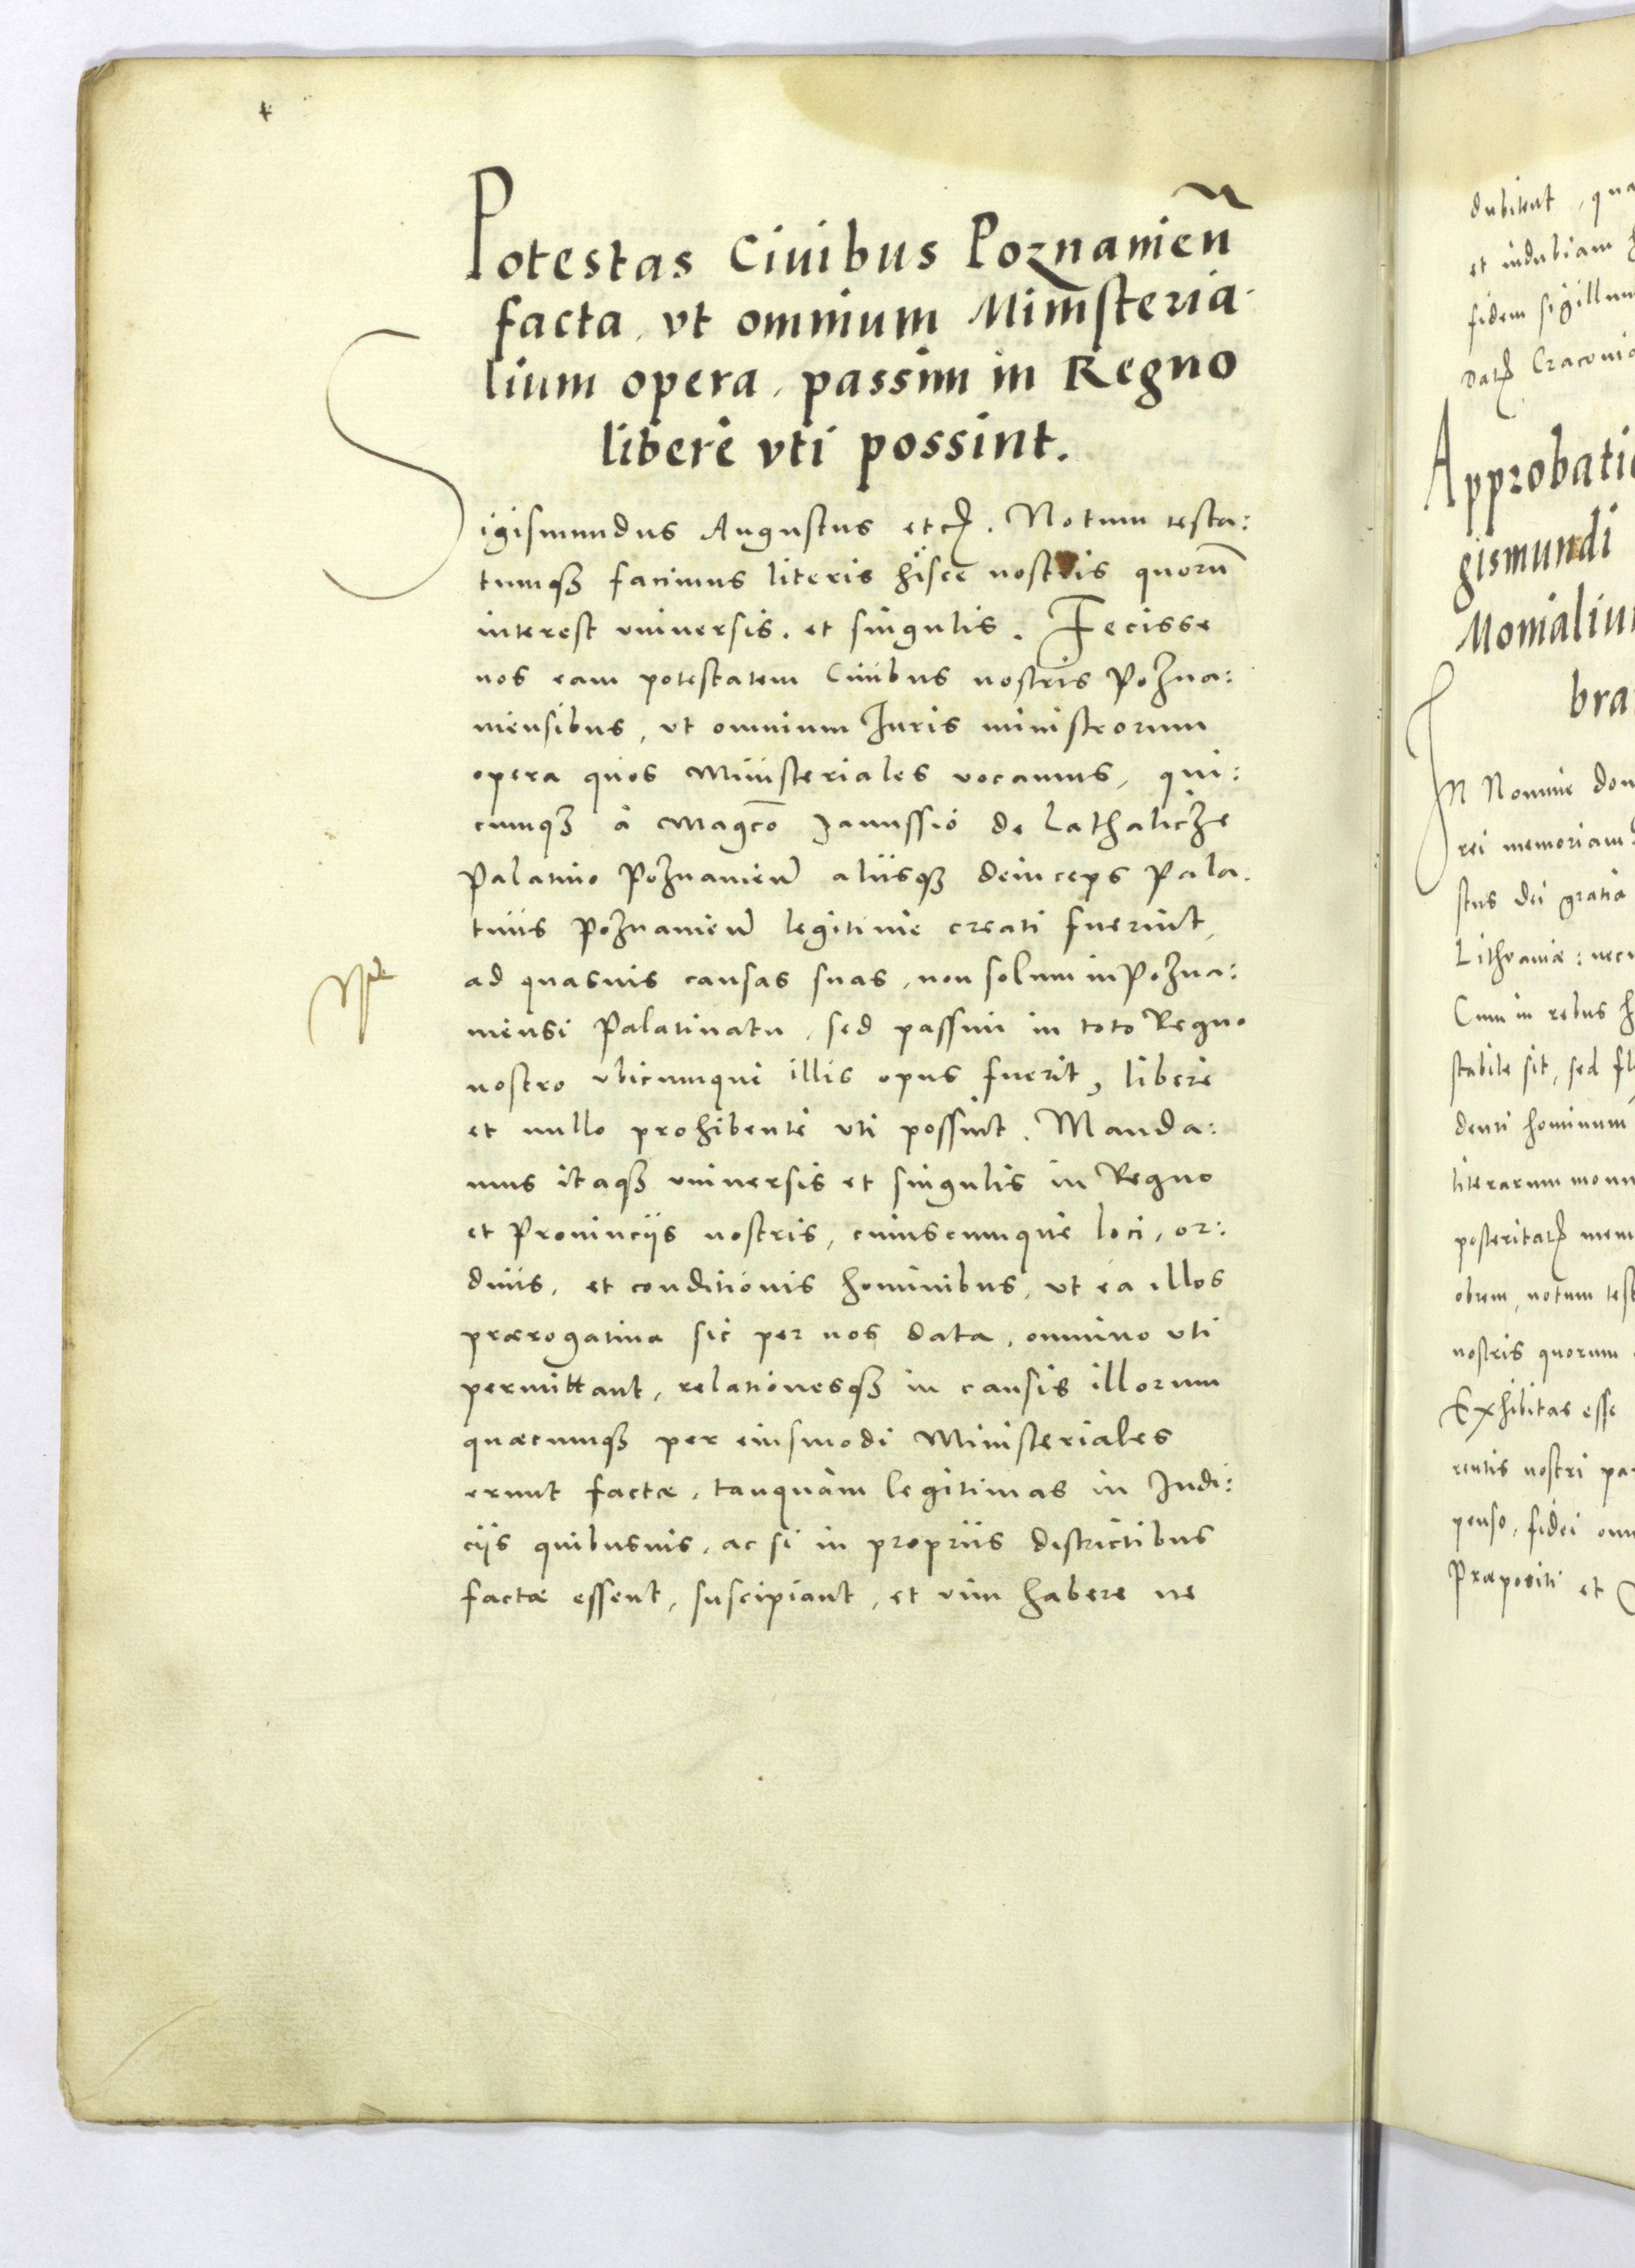 Potestas Ciuibus Poznanień
facta, vt omnium Ministeria-
lium opera, passim in Regno
libere vti possint.
Sigismundus Augustus etc. Notum testa:
tumqȝ facimus literis hisce nostris quorū
interest vniuersis, et singulis. Fecisse
nos eam potestatem Ciuibus nostris Pozna:
niensibus, vt omnium Iuris ministrorum
opera quos Ministeriales vocamus, qui:
cumqȝ à Magco Janussio de Lathaliczze
Palatino Poznanień aliisqȝ deinceps Pala-
tinis Poznanień legitime creati fuerint,
ad quasuis causas suas, non solum in Pozna:
niensi Palatinatu, sed passim in toto Regno
nostro vbicumque illis opus fuerit, libere
et nullo prohibente vti possint. Manda:
mus itaqȝ vniuersis et singulis in Regno
et Prouincijs nostris, cuiuscumque loci, or:
dinis, et conditionis hominibus, vt ea illos
prærogatiua sic per nos data, omnino vti
permittant, relationesqȝ in causis illorum
quæcumqȝ per eiusmodi Ministeriales
erunt factæ, tanquam legitimas in Iudi:
cijs quibusuis, ac si in propriis districtibus
factæ essent, suscipiant, et vim habere ne
dubitent, qua
et indubiam
fidem sigillum
Dat Cracouia
Approbatio
gismundi
Monialium
bra
In Nomine dom
rei memoriam
stus dei gratia
Lithvaniæ: necn
Cum in rebus h
stabile sit, sed fl
denti hominum
literarum monu
posteritat mem
obrem, notum test
nostris quorum
Exhibitas esse
rentis nostri pa
penso, fidei omn
Præpositi et